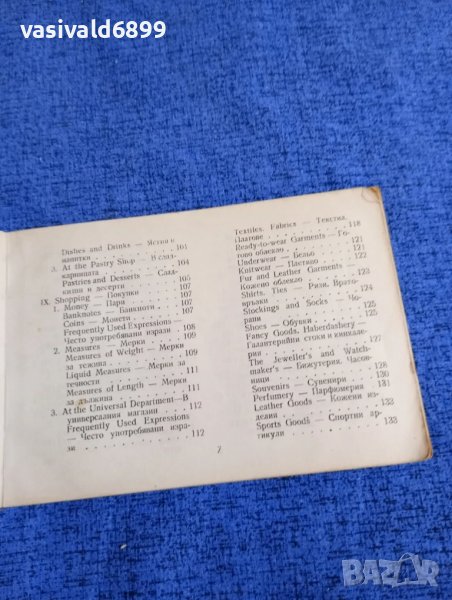 vasivald6899
Dishes and Drinks — Ястия и
напитки . . . . . . 101
3. At the Pastry Shop — В слад-
карницата . . . . . 104
Pastries and Desserts — Слад-
киши и десерти . . . 105
IX. Shopping — Покупки . . . 106
1. Money — Пари . . . . 107
Banknotes — Банкноти . . 107
Coins — Монети . . . . 107
Frequently Used Expressions —
Често употребявани изрази 108
2. Measures — Мерки . . . 109
Measures of Weight — Мерки
за тежина . . . . . 109
Liquid Measures — Мерки за
течности . . . . . 111
Measures of Length — Мерки
за дължина . . . . . 111
3. At the Universal Department—В
универсалния магазин . . 112
Frequently Used Expressions
— Често употребявани изра-
зи . . . . . . . 112
Textiles. Fabrics — Текстил.
Платове . . . . . . 118
Ready-to-wear Garments — Го-
тово облекло . . . . 121
Underwear — Бельо . . . 121
Knitwear — Плетиво . . . 122
Fur and Leather Garments —
Кожено облекло . . . . 123
Shirts, Ties — Ризи, Врато-
връзки . . . . . . 124
Stockings and Socks — Чо-
рапи . . . . . . . 125
Shoes — Обувки . . . . 125
Fancy Goods. Haberdashery —
Галантерийни стоки и кинкале-
рия . . . . . . . 127
The Jeweller's and Watch-
maker's — Бижутерия. Часов-
ници . . . . . . . 128
Souvenirs — Сувенири . . 130
Perfumery — Парфюмерия . 131
Leather Goods — Кожени из-
делия . . . . . . 133
Sports Goods — Спортни ар-
тикули . . . . . . 133
7
BAZAR.bg